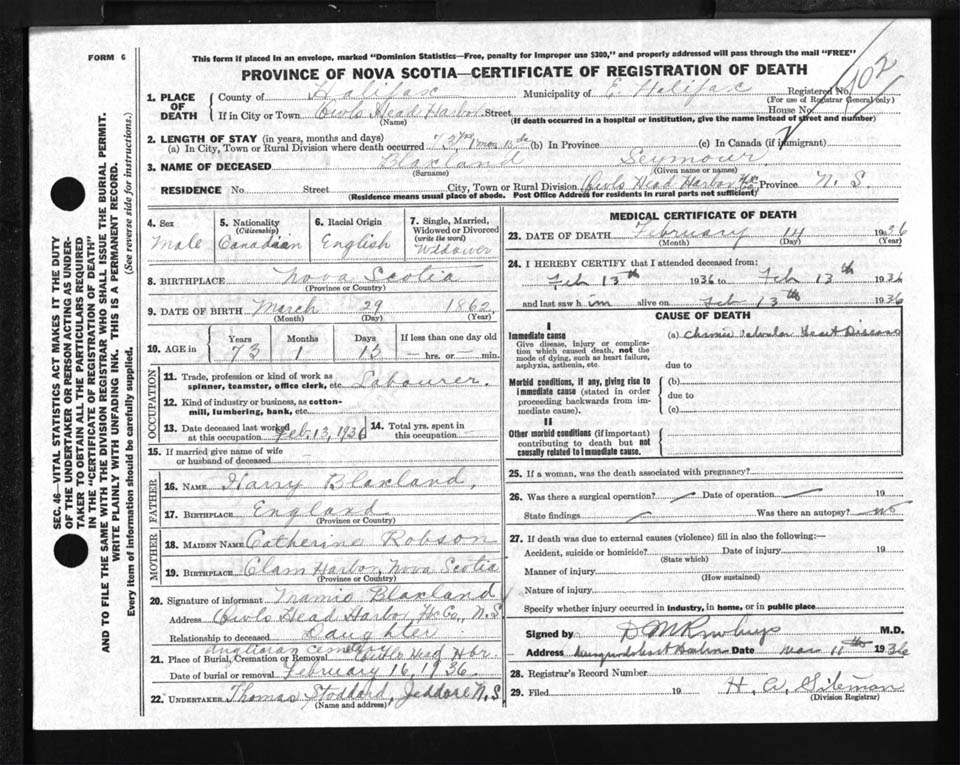 FORM 6
This form if placed in an envelope, marked "Dominion Statistics—Free, penalty for improper use $300," and properly addressed will pass through the mail "FREE"
PROVINCE OF NOVA SCOTIA—CERTIFICATE OF REGISTRATION OF DEATH
102
1. PLACE OF DEATH
County of Halifax Municipality of E. Halifax Registered No.
(For use of Registrar General only)
If in City or Town Owls Head Harbor Street House No.
(Name) (If death occurred in a hospital or institution, give the name instead of street and number)
2. LENGTH OF STAY (in years, months and days)
(a) In City, Town or Rural Division where death occurred 73 yrs 1 mos 15 ds (b) In Province (c) In Canada (if immigrant)
3. NAME OF DECEASED Blaxland Seymour
(Surname) (Given name or names)
RESIDENCE No. Street City, Town or Rural Division Owls Head Harbor Hx Co Province N. S.
(Residence means usual place of abode. Post Office Address for residents in rural parts not sufficient)
4. Sex Male
5. Nationality (Citizenship) Canadian
6. Racial Origin English
7. Single, Married, Widowed or Divorced (write the word) Widower
8. BIRTHPLACE Nova Scotia
(Province or Country)
9. DATE OF BIRTH March 29 1862
(Month) (Day) (Year)
10. AGE in Years 73 Months 1 Days 15 If less than one day old hrs. or min.
OCCUPATION
11. Trade, profession or kind of work as spinner, teamster, office clerk, etc. Labourer.
12. Kind of industry or business, as cotton-mill, lumbering, bank, etc.
13. Date deceased last worked at this occupation Feb. 13, 1936
14. Total yrs. spent in this occupation
15. If married give name of wife or husband of deceased
FATHER
16. NAME Harry Blaxland,
17. BIRTHPLACE England
(Province or Country)
MOTHER
18. MAIDEN NAME Catherine Robson
19. BIRTHPLACE Clam Harbor, Nova Scotia
(Province or Country)
20. Signature of informant Mamie Blaxland
Address Owls Head Harbor, Hx Co, N. S
Relationship to deceased Daughter
Anglican cemetery
21. Place of Burial, Cremation or Removal Owls Head Hbr.
Date of burial or removal February 16, 1936
22. UNDERTAKER Thomas Stoddard, Jeddore N. S
(Name and address)
MEDICAL CERTIFICATE OF DEATH
23. DATE OF DEATH February 14 1936
(Month) (Day) (Year)
24. I HEREBY CERTIFY that I attended deceased from:
Feb 13th 1936 to Feb 13th 1936
and last saw him alive on Feb 13th 1936
CAUSE OF DEATH
I
Immediate cause (a) Chronic Valvular Heart Disease
Give disease, injury or complication which caused death, not the mode of dying, such as heart failure, asphyxia, asthenia, etc.
due to
Morbid conditions, if any, giving rise to immediate cause (stated in order proceeding backwards from immediate cause).
(b)
due to
(c)
II
Other morbid conditions (if important) contributing to death but not causally related to immediate cause.
25. If a woman, was the death associated with pregnancy?
26. Was there a surgical operation? Date of operation 19
State findings Was there an autopsy? no
27. If death was due to external causes (violence) fill in also the following:—
Accident, suicide or homicide? Date of injury 19
(State which)
Manner of injury
(How sustained)
Nature of injury
Specify whether injury occurred in industry, in home, or in public place
Signed by M.D.
Address Date Mar 11th 1936
28. Registrar's Record Number
29. Filed 19
(Division Registrar)
SEC. 46—VITAL STATISTICS ACT MAKES IT THE DUTY
OF THE UNDERTAKER OR PERSON ACTING AS UNDER-
TAKER TO OBTAIN ALL THE PARTICULARS REQUIRED
IN THE "CERTIFICATE OF REGISTRATION OF DEATH"
AND TO FILE THE SAME WITH THE DIVISION REGISTRAR WHO SHALL ISSUE THE BURIAL PERMIT.
WRITE PLAINLY WITH UNFADING INK. THIS IS A PERMANENT RECORD.
Every item of information should be carefully supplied. (See reverse side for instructions.)